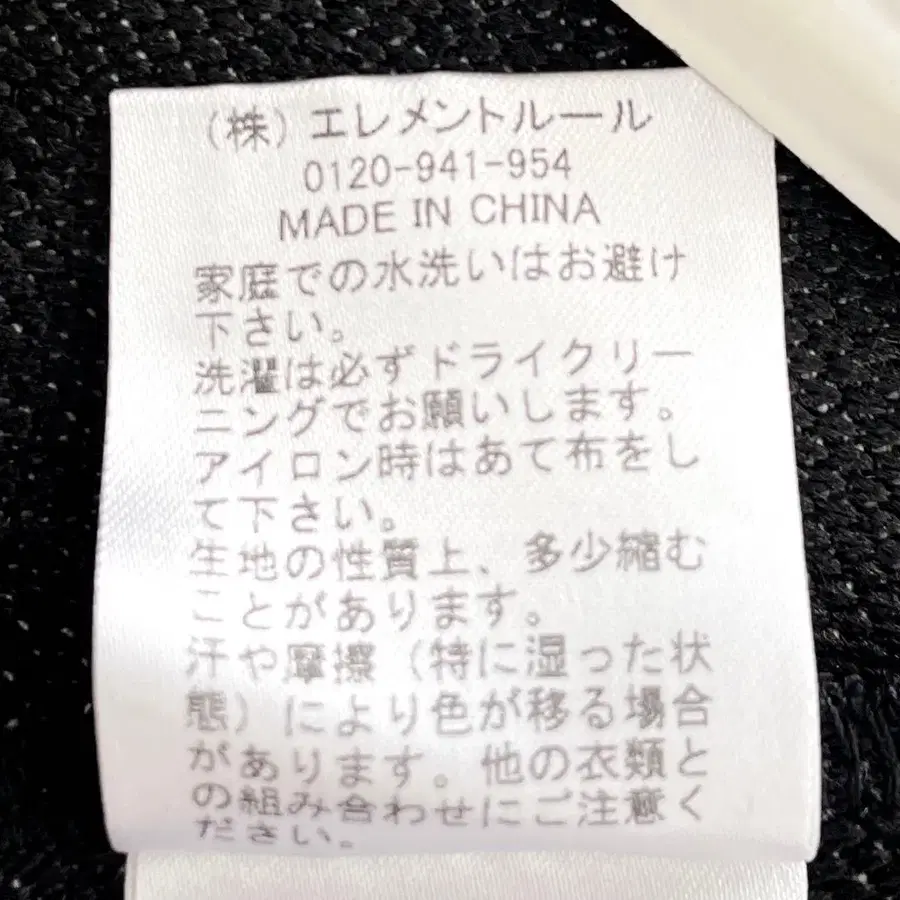 (株)エレメントルール
0120-941-954
MADE IN CHINA
家庭での水洗いはお避け
下さい。
洗濯は必ずドライクリー
ニングでお願いします。
アイロン時はあて布をし
て下さい。
生地の性質上、多少縮む
ことがあります。
汗や摩擦(特に湿った状
態)により色が移る場合
があります。他の衣類と
の組み合わせにご注意く
ださい。